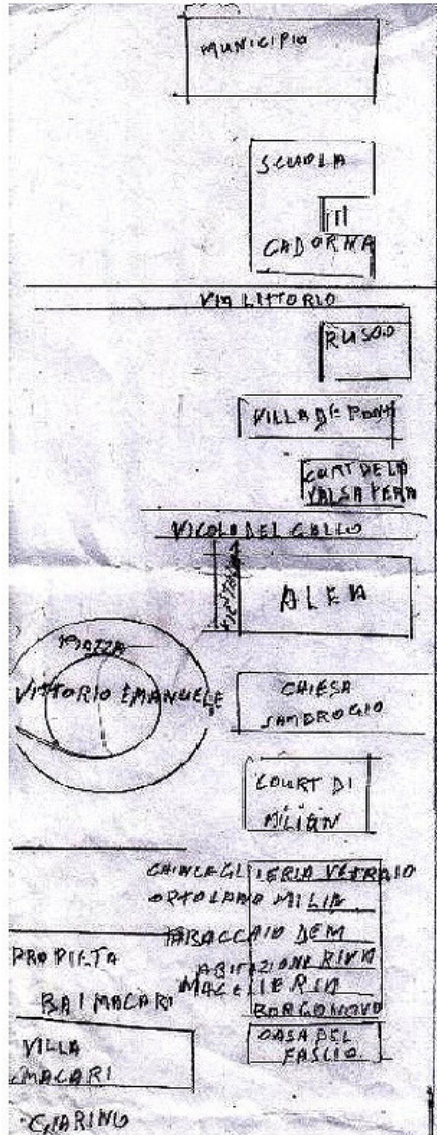 MUNICIPIO
SCUOLA
CADORNA
VIA LITTORIO
RUSOO
VILLA DE PONTI
COURT DE LA
VALSA VERA
VICOLO DEL GALLO
ALEA
PIAZZA
VITTORIO EMANUELE
CHIESA
SAMBROGIO
COURT DI
MILIAN
CHINCAGLIERIA VETRAIO
ORTOLANO MILIA
TABACCAIO DEM
ABITAZIONE RIVA
MACELLERIA
BORGONOVO
PROPIETA
BAI MACARI
CASA DEL
FASCIO
VILLA
MACARI
GIARINO